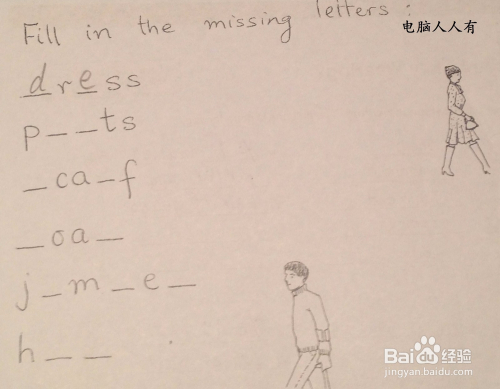 Fill in the missing letters :
电脑人人有
dress
p__ts
_ca_f
_oa_
j_m_e_
h__
Baidu经验
jingyan.baidu.com